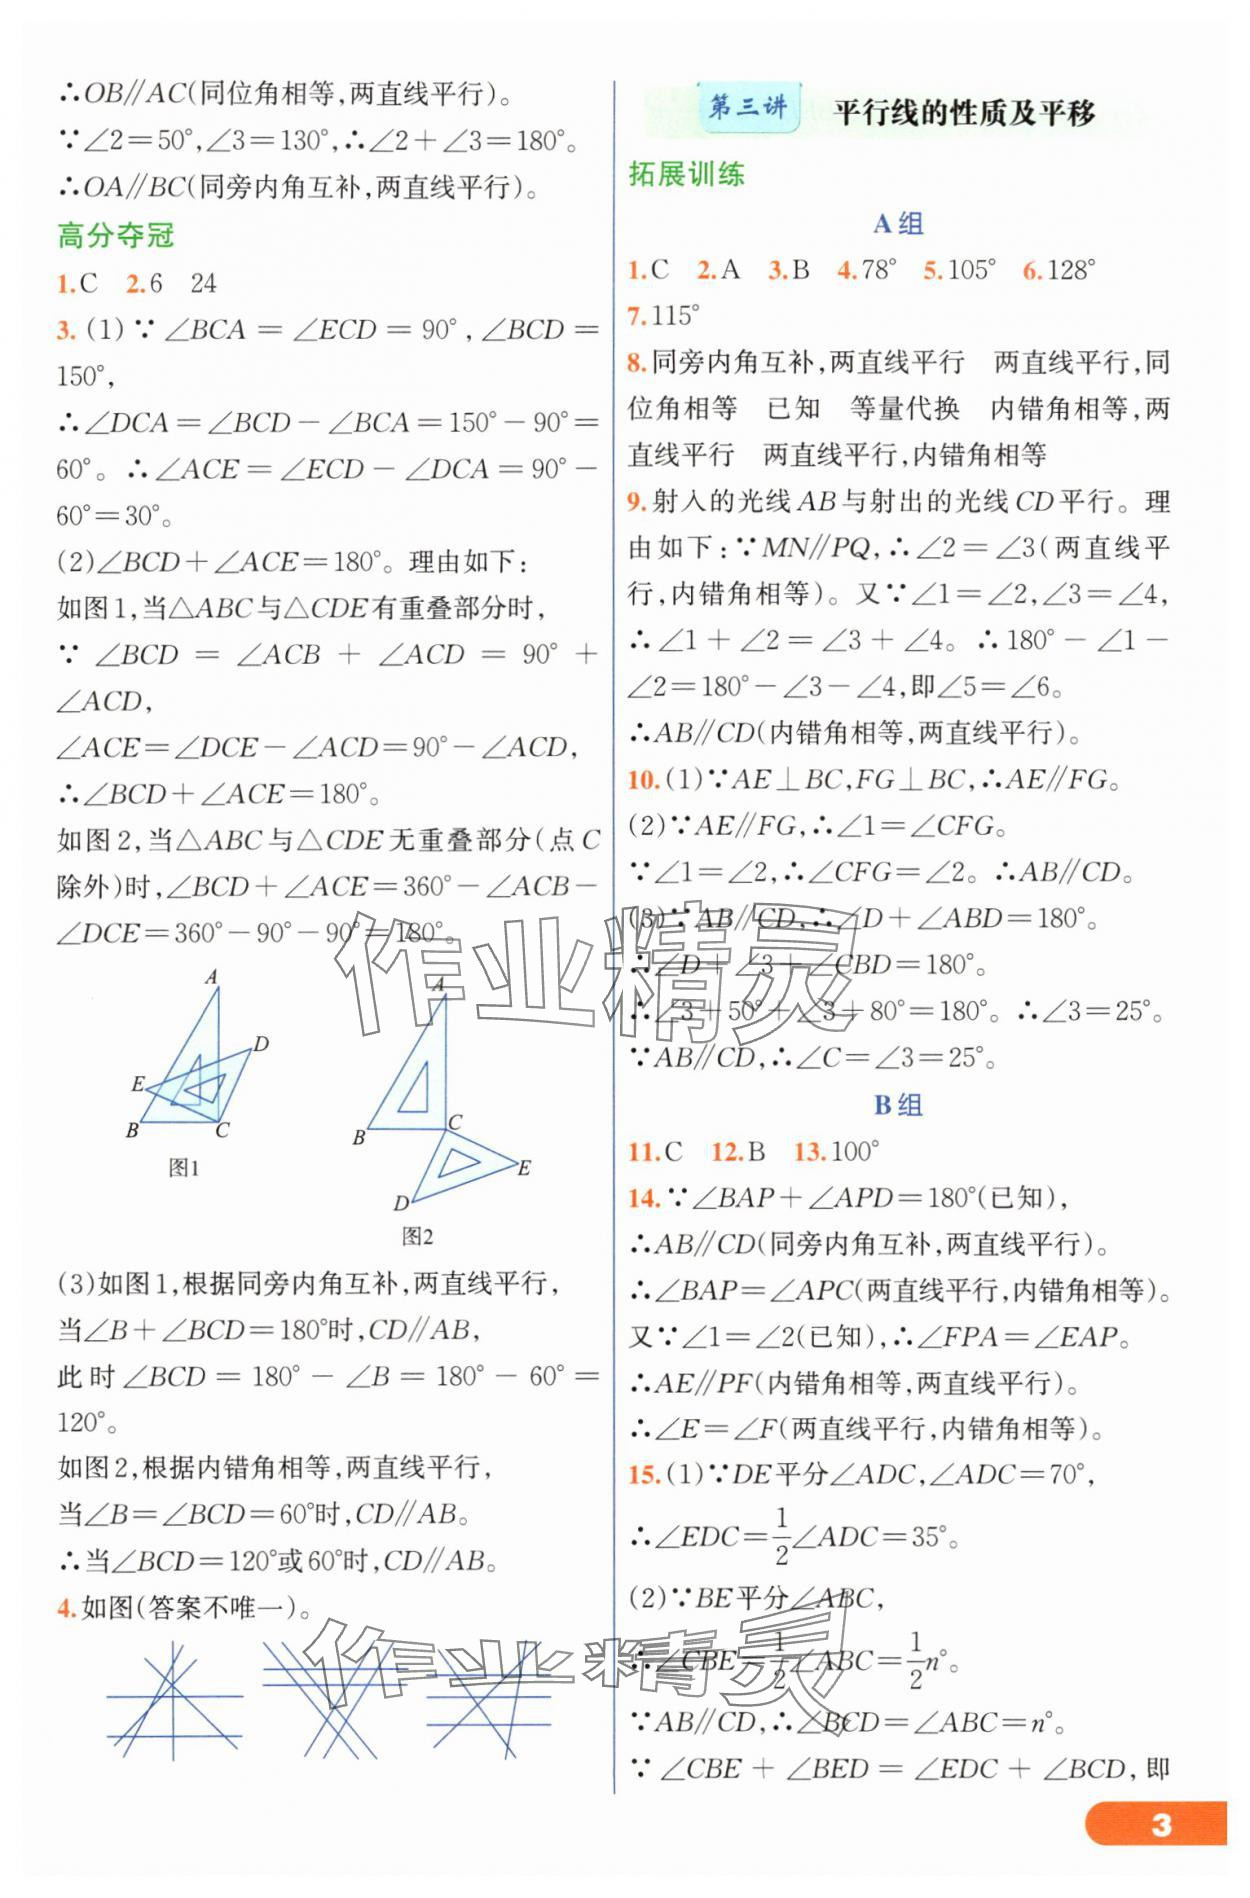 ∴OB∥AC(同位角相等,两直线平行)。
∵∠2=50°,∠3=130°,∴∠2+∠3=180°。
∴OA∥BC(同旁内角互补,两直线平行)。
高分夺冠
1.C 2.6 24
3.(1)∵∠BCA=∠ECD=90°,∠BCD=
150°,
∴∠DCA=∠BCD-∠BCA=150°-90°=
60°。∴∠ACE=∠ECD-∠DCA=90°-
60°=30°。
(2)∠BCD+∠ACE=180°。理由如下:
如图1,当△ABC与△CDE有重叠部分时,
∵∠BCD=∠ACB+∠ACD=90°+
∠ACD,
∠ACE=∠DCE-∠ACD=90°-∠ACD,
∴∠BCD+∠ACE=180°。
如图2,当△ABC与△CDE无重叠部分(点C
除外)时,∠BCD+∠ACE=360°-∠ACB-
∠DCE=360°-90°-90°=180°。
A
D
E
B
C
图1
A
B
C
E
D
图2
(3)如图1,根据同旁内角互补,两直线平行,
当∠B+∠BCD=180°时,CD∥AB,
此时∠BCD=180°-∠B=180°-60°=
120°。
如图2,根据内错角相等,两直线平行,
当∠B=∠BCD=60°时,CD∥AB。
∴当∠BCD=120°或60°时,CD∥AB。
4.如图(答案不唯一)。
第三讲 平行线的性质及平移
拓展训练
A组
1.C 2.A 3.B 4.78° 5.105° 6.128°
7.115°
8.同旁内角互补,两直线平行 两直线平行,同
位角相等 已知 等量代换 内错角相等,两
直线平行 两直线平行,内错角相等
9.射入的光线AB与射出的光线CD平行。理
由如下:∵MN∥PQ,∴∠2=∠3(两直线平
行,内错角相等)。又∵∠1=∠2,∠3=∠4,
∴∠1+∠2=∠3+∠4。∴180°-∠1-
∠2=180°-∠3-∠4,即∠5=∠6。
∴AB∥CD(内错角相等,两直线平行)。
10.(1)∵AE⊥BC,FG⊥BC,∴AE∥FG。
(2)∵AE∥FG,∴∠1=∠CFG。
∵∠1=∠2,∴∠CFG=∠2。∴AB∥CD。
(3)∵AB∥CD,∴∠D+∠ABD=180°。
∴∠D+∠3+∠CBD=180°。
∴∠3+50°+∠3+80°=180°。∴∠3=25°。
∵AB∥CD,∴∠C=∠3=25°。
B组
11.C 12.B 13.100°
14.∵∠BAP+∠APD=180°(已知),
∴AB∥CD(同旁内角互补,两直线平行)。
∴∠BAP=∠APC(两直线平行,内错角相等)。
又∵∠1=∠2(已知),∴∠FPA=∠EAP。
∴AE∥PF(内错角相等,两直线平行)。
∴∠E=∠F(两直线平行,内错角相等)。
15.(1)∵DE平分∠ADC,∠ADC=70°,
∴∠EDC=1/2∠ADC=35°。
(2)∵BE平分∠ABC,
∴∠CBE=1/2∠ABC=1/2n°。
∵AB∥CD,∴∠BCD=∠ABC=n°。
∵∠CBE+∠BED=∠EDC+∠BCD,即
3
作业精灵
作业精灵